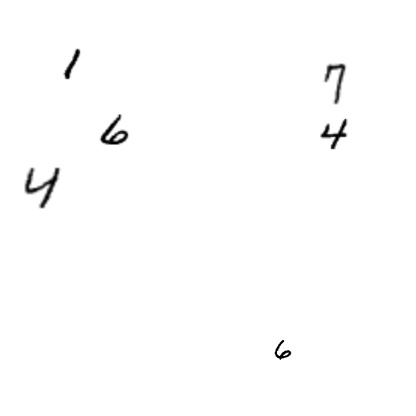 1 7
6 4
4
6